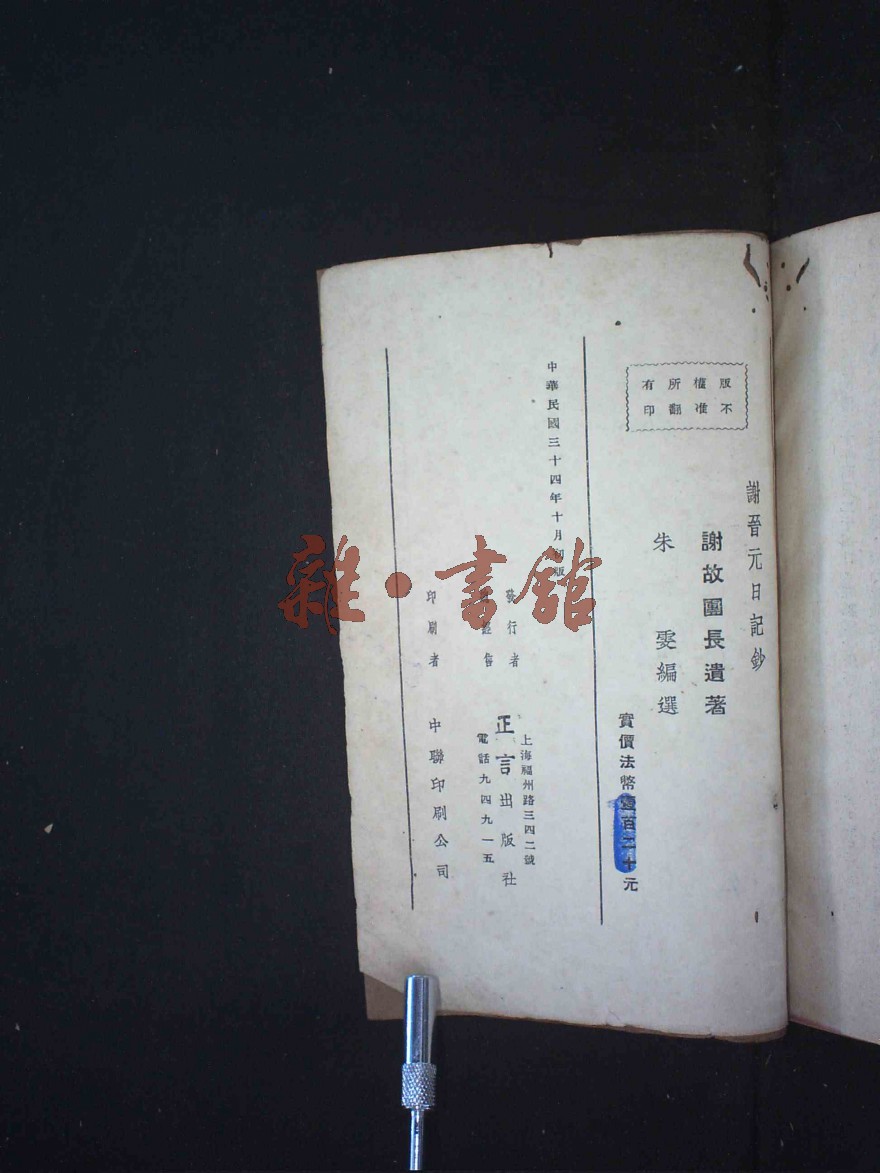 謝晉元日記鈔
版權所有
不准翻印
謝故團長遺著
朱雯編選
實價法幣壹百二十元
中華民國三十四年十月初版
發行者
上海福州路三四二號
正言出版社
電話九四九一五
印刷者
中聯印刷公司
雜·書館